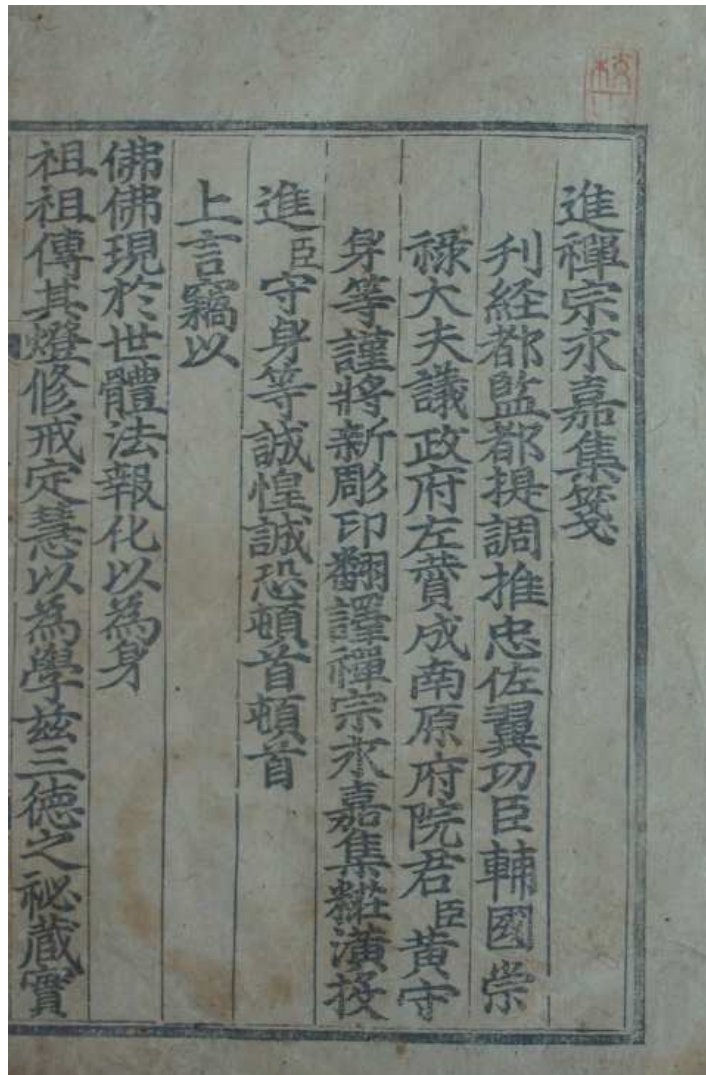 進禪宗永嘉集箋
刋経都監都提調推忠佐翼功臣輔國崇
祿大夫議政府左賛成南原府院君臣黃守
身等謹將新彫印翻譯禪宗永嘉集糚潢投
進臣守身等誠惶誠恐頓首頓首
上言竊以
佛佛現於世體法報化以為身
祖祖傳其燈修戒定慧以為學玆三德之祕蔵實